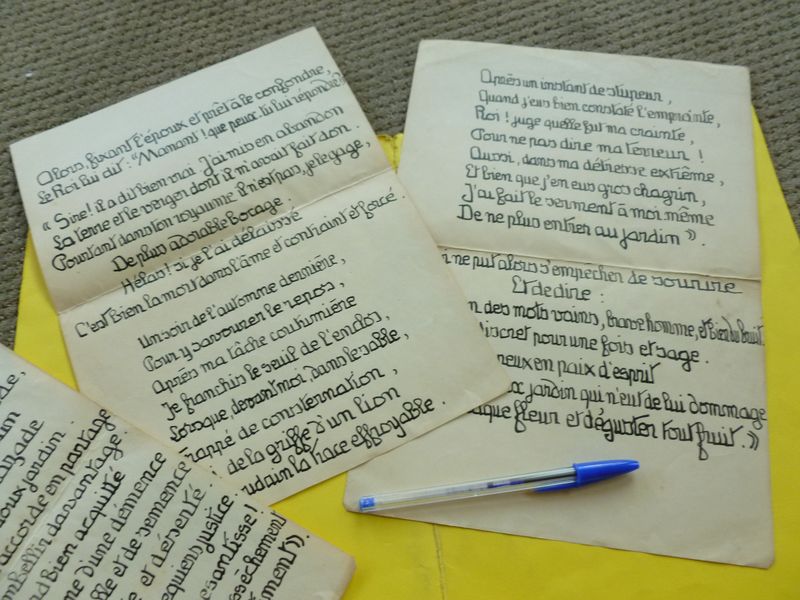 Alors, fixant l'époux et prêt à le confondre,
Le Roi lui dit : "Manant ! que peux-tu lui répondre ?
« Sire ! il a dit bien vrai. J'ai mis en abandon
La terre et le verger dont il m'avait fait don.
Pourtant dans ton royaume il n'est pas, je le gage,
De plus adorable bocage.
Hélas ! si je l'ai délaissé
C'est bien la mort dans l'âme et contraint et forcé.
Un soir de l'automne dernière,
Pour y savourer le repos,
Après ma tâche coutumière
Je franchis le seuil de l'enclos,
Lorsque, devant moi, dans le sable,
de consternation,
de la griffe d'un lion
la trace effroyable.
Après un instant de stupeur,
Quand j'eus bien constaté l'empreinte,
Roi ! juge quelle fut ma crainte,
Pour ne pas dire ma terreur !
Aussi, dans ma détresse extrême,
Et bien que j'en eus gros chagrin,
J'ai fait le serment à moi même
De ne plus entrer au jardin ».
ne put alors s'empêcher de sourire
Et de dire :
des mots vains, brave homme, et bien du bruit.
discret pour une fois et sage.
en paix d'esprit
jardin qui n'eut de lui dommage
fleur et déguster tout fruit. »
jardin.
accorde en partage
davantage
bien acquité
d'une démence
et de semence
et déserté
justice